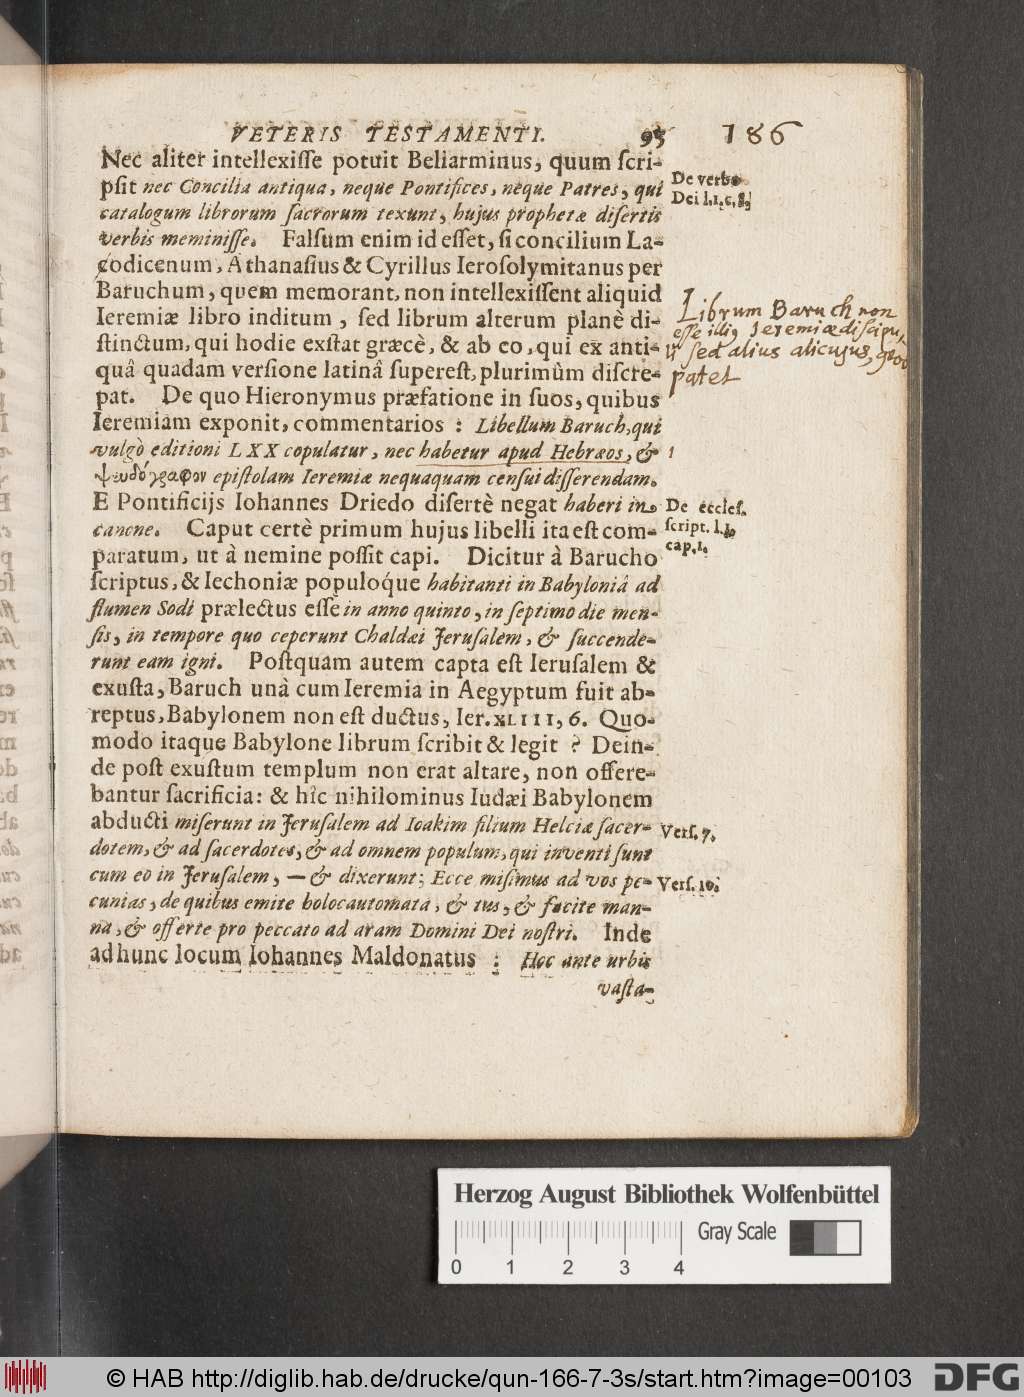 VETERIS TESTAMENTI. 95 186
Nec aliter intellexiſſe potuit Beliarminus, quum ſcri-
pſit nec Concilia antiqua, neque Pontifices, neque Patres, qui
catalogum librorum ſacrorum texunt, hujus prophetæ diſertis
verbis meminiſſe. Falſum enim id eſſet, ſi concilium La-
codicenum, Athanaſius & Cyrillus Ieroſolymitanus per
Baruchum, quem memorant, non intellexiſſent aliquid
Ieremiæ libro inditum, ſed librum alterum planè di-
ſtinctum, qui hodie exſtat græcè, & ab eo, qui ex anti-
quâ quadam verſione latinâ ſupereſt, plurimùm diſcre-
pat. De quo Hieronymus præfatione in ſuos, quibus
Ieremiam exponit, commentarios : Libellum Baruch, qui
vulgò editioni LXX copulatur, nec habetur apud Hebræos, &
ψευδόγραφον epiſtolam Ieremiæ nequaquam cenſui diſſerendam.
E Pontificijs Iohannes Driedo diſertè negat haberi in
canone. Caput certè primum hujus libelli ita eſt com-
paratum, ut à nemine poſſit capi. Dicitur à Barucho
ſcriptus, & Iechoniæ populoque habitanti in Babyloniâ ad
flumen Sodi prælectus eſſe in anno quinto, in ſeptimo die men-
ſis, in tempore quo ceperunt Chaldæi Jeruſalem, & ſuccende-
runt eam igni. Poſtquam autem capta eſt Ieruſalem &
exuſta, Baruch unà cum Ieremia in Aegyptum fuit ab-
reptus, Babylonem non eſt ductus, Ier. XLIII, 6. Quo-
modo itaque Babylone librum ſcribit & legit ? Dein-
de poſt exuſtum templum non erat altare, non offere-
bantur ſacrificia: & hîc nihilominus Iudæi Babylonem
abducti miſerunt in Jeruſalem ad Ioakim filium Helciæ ſacer-
dotem, & ad ſacerdotes, & ad omnem populum, qui inventi ſunt
cum eo in Jeruſalem, — & dixerunt; Ecce miſimus ad vos pe-
cunias, de quibus emite holocautomata, & tus, & facite man-
na, & offerte pro peccato ad aram Domini Dei noſtri. Inde
ad hunc locum Iohannes Maldonatus : Hoc ante urbis
vaſta-
De verbo
Dei l.1. c. 8.
Librum Baruch non
eſſe illiꝰ Jeremiæ diſcipu-
li ſed alius alicujus, quod
patet
1
De eccleſ.
ſcript. l.1.
cap. 1.
Verſ. 7.
Verſ. 10.
Herzog August Bibliothek Wolfenbüttel
Gray Scale
0 1 2 3 4
© HAB http://diglib.hab.de/drucke/qun-166-7-3s/start.htm?image=00103
DFG